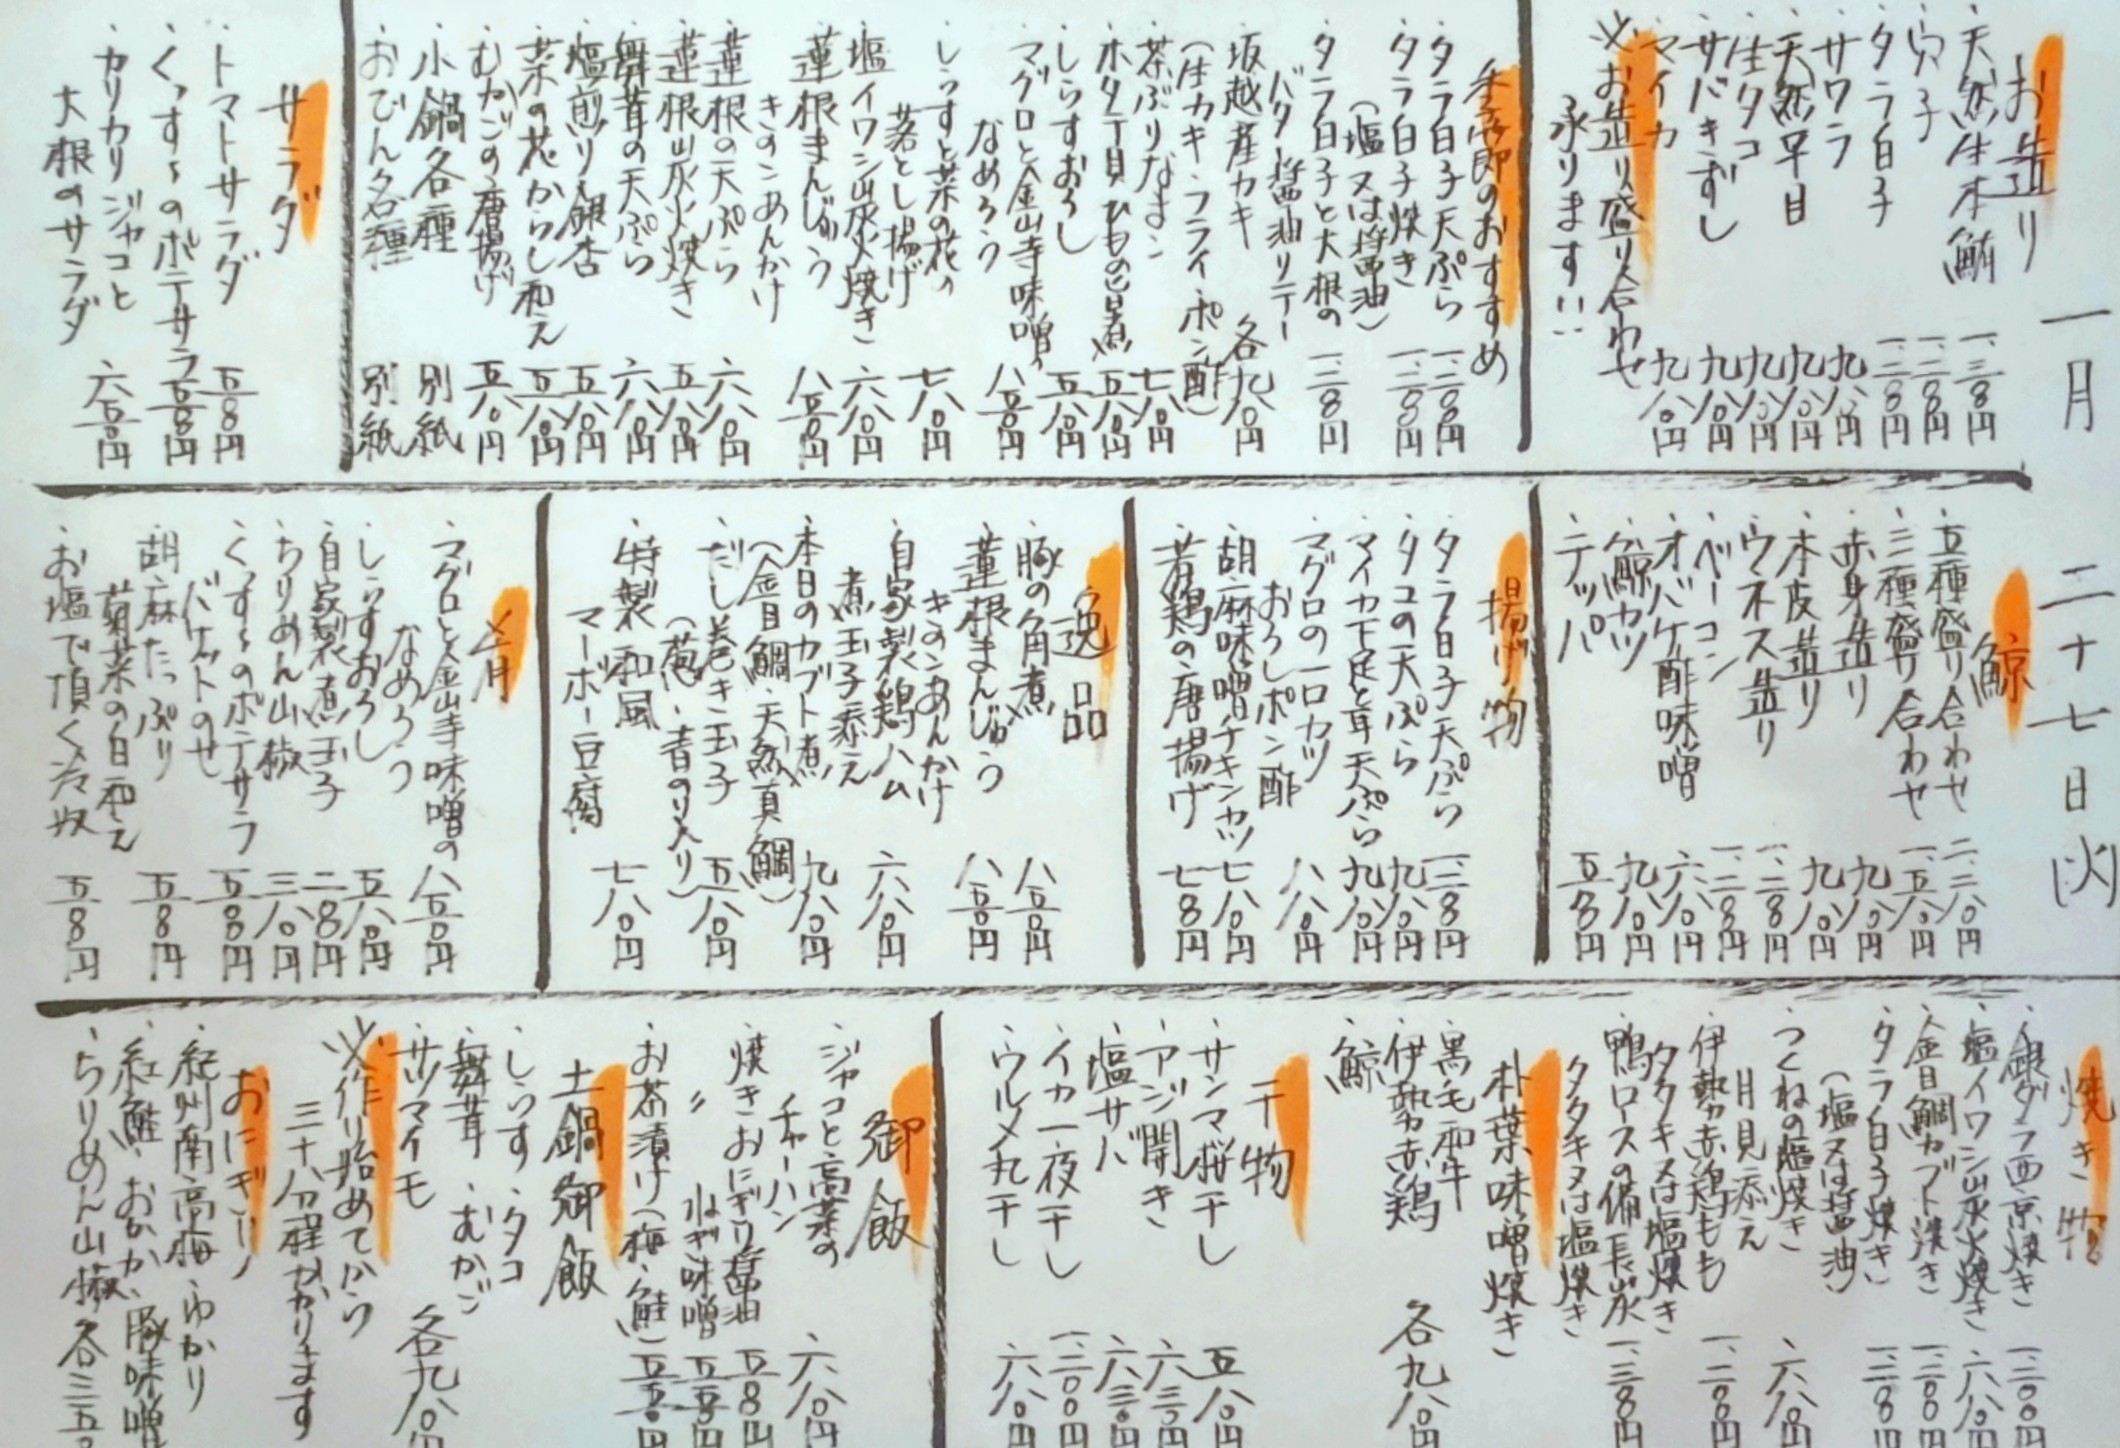 一月二十七日(火)
お造り
・天然生本鮪 一、三〇〇円
・穴子 一、二〇〇円
・タラ白子 一、二〇〇円
・サワラ 九八〇円
・天然平目 九八〇円
・生タコ 九八〇円
・サバきずし 九八〇円
・マイカ 九八〇円
※お造り盛り合わせ
承ります!!
季節のおすすめ
・タラ白子天ぷら 一、二〇〇円
・タラ白子焼き 一、二〇〇円
(塩又は醤油)
・タラ白子と大根の
バター醤油ソテー 一、二〇〇円
・坂越産カキ 各九八〇円
(生カキ・フライ・ポン酢)
・茶ぶりなまこ 七八〇円
・ホタテ貝ひもの旨煮 五八〇円
・しらすおろし 五八〇円
・マグロと金山寺味噌の
なめろう 八五〇円
・しらすと菜の花の
落とし揚げ 七八〇円
・塩イワシ山灰火焼き 六八〇円
・蓮根まんじゅう
きのこあんかけ 八五〇円
・蓮根の天ぷら 六八〇円
・蓮根山灰火焼き 五八〇円
・舞茸の天ぷら 六八〇円
・塩煎り銀杏 五八〇円
・菜の花からし和え 五八〇円
・むかごの唐揚げ 五八〇円
・小鍋各種 別紙
・おでん各種 別紙
サラダ
・トマトサラダ 五五〇円
・くっすぅのポテサラ 五五〇円
・カリカリジャコと
大根のサラダ 六五〇円
鯨
・五種盛り合わせ 二、二八〇円
・三種盛り合わせ 一、五八〇円
・赤身造り 九八〇円
・本皮造り 九八〇円
・ウネス造り 一、二〇〇円
・ベーコン 一、二〇〇円
・オバケ酢味噌 六八〇円
・鯨カツ 九八〇円
・テッパ 五五〇円
揚げ物
・タラ白子天ぷら 一、二〇〇円
・タコの天ぷら 九八〇円
・マイカ下足と耳天ぷら 九八〇円
・マグロの一口カツ
おろしポン酢 八八〇円
・胡麻味噌チキンカツ 七八〇円
・若鶏の唐揚げ 七〇〇円
逸品
・豚の角煮 八五〇円
・蓮根まんじゅう
きのこあんかけ 八五〇円
・自家製鶏ハム
煮玉子添え 六八〇円
・本日のカブト煮 九八〇円
(金目鯛・天然真鯛)
・だし巻き玉子 五八〇円
(葱・青のり入り)
・特製和風
マーボー豆腐 七八〇円
肴
・マグロと金山寺味噌の
なめろう 八五〇円
・しらすおろし 五八〇円
・自家製煮玉子 二〇〇円
・ちりめん山椒 三八〇円
・くっすぅのポテサラ
バケットのせ 五五〇円
・胡麻たっぷり
菊菜の白和え 五〇〇円
・お塩で頂く冷奴 五〇〇円
焼き物
・銀ダラ西京焼き 一、二〇〇円
・塩イワシ山灰火焼き 六八〇円
・金目鯛カブト焼き 一、二〇〇円
・タラ白子焼き 一、二〇〇円
(塩又は醤油)
・つくねの塩焼き
月見添え 六八〇円
・伊勢赤鶏もも
タタキ又は塩焼き 一、二〇〇円
・鴨ロースの備長炭
タタキ又は塩焼き 一、三〇〇円
朴葉味噌焼き
・黒毛和牛
・伊勢赤鶏 各九八〇円
・鯨
干物
・サンマ桜干し 五八〇円
・アジ開き 六三〇円
・塩サバ 六三〇円
・イカ一夜干し 一、二〇〇円
・ウルメ丸干し 六八〇円
御飯
・ジャコと高菜の
チャーハン 六八〇円
・焼きおにぎり醤油 五〇〇円
〃 ねぎ味噌 五五〇円
・お茶漬け(梅・鮭) 五五〇円
土鍋御飯
・しらす・タコ
・舞茸・むかご
・サツマイモ 各九八〇円
※作り始めてから
三十分程かかります
おにぎり
・紀州南高梅・ゆかり
・紅鮭・おかか・豚味噌
・ちりめん山椒 各三五〇